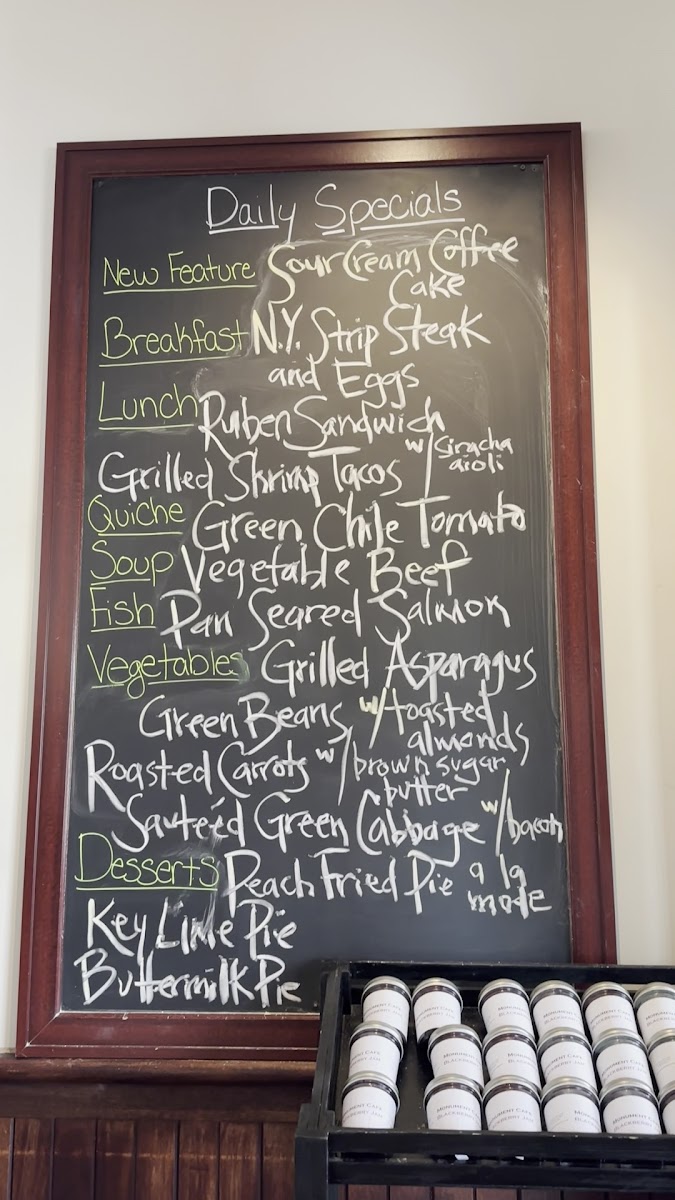 Daily Specials
New Feature Sour Cream Coffee
Cake
Breakfast N.Y. Strip Steak
and Eggs
Lunch Ruben Sandwich
Grilled Shrimp Tacos w/siracha
aioli
Quiche Green Chile Tomato
Soup Vegetable Beef
Fish Pan Seared Salmon
Vegetables Grilled Asparagus
Green Beans w/toasted
almonds
Roasted Carrots w/brown sugar
butter
Sauteéd Green Cabbage w/bacon
Desserts Peach Fried Pie a la
mode
Key Lime Pie
Buttermilk Pie
Monument Cafe
Blackberry Jam